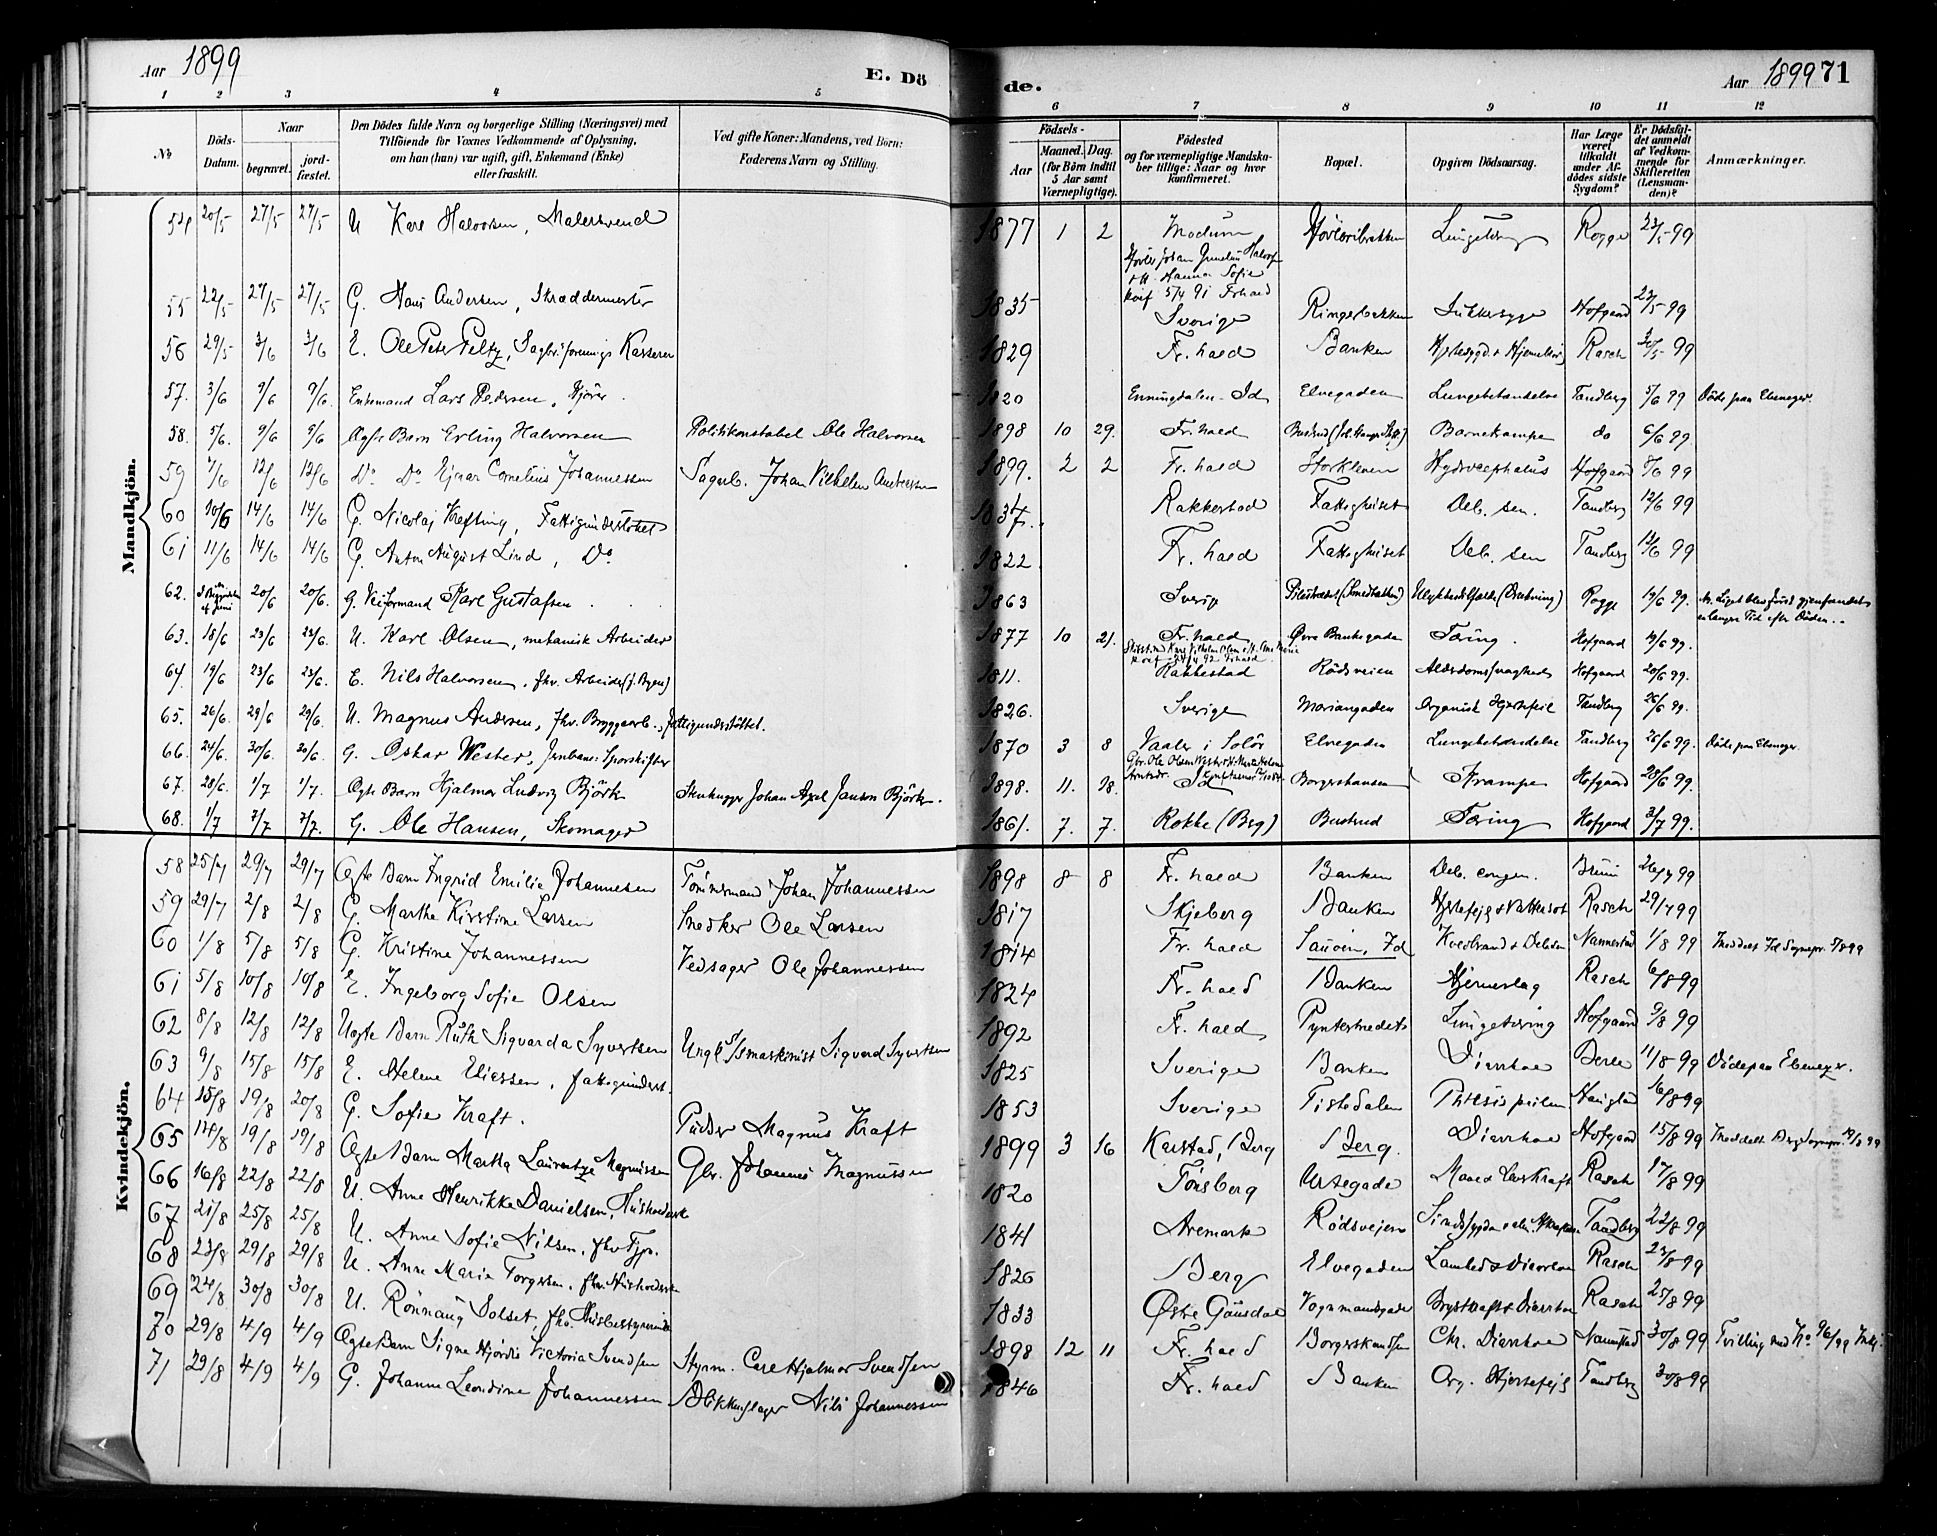 Aar 1899
E. Dö
de.
Aar 1899 71
1 2 3 4 5 6 7 8 9 10 11 12
No Döds-Datum. Naar begravet. jordfæstet. Den Dödes fulde Navn og borgerlige Stilling (Næringsvei) med Tilföiende for Voxnes Vedkommende af Oplysning, om han (hun) var ugift, gift, Enkemand (Enke) eller fraskilt. Ved gifte Koner: Mandens, ved Börn: Faderens Navn og Stilling. Födsels- Aar Maaned. Dag. (for Börn indtil 5 Aar samt Værnepligtige). Födested og for værnepligtige Mandskaber tillige: Naar og hvor konfirmeret. Bopæl. Opgiven Dödsaarsag. Har Læge været tilkaldt under Afdödes sidste Sygdom? Er Dödsfaldet anmeldt af Vedkommende for Skifteretten (Lensmanden)? Anmærkninger.
Mandkjön.
54 20/5 27/5 27/5 U Karl Halvorsen, Malersvend 1877 1 2 Modum Rogge 23/5 99
Hanna Sofie
55 22/5 27/5 27/5 G. Hans Andersen, Skræddermester 1835 Sverige Ringerbakken Sukkersyge Hofgaard 23/5 99
56 29/5 3/6 3/6 E. Ole Peter Peltz, Kasserer 1829 Fr.hald Banken Rasch 30/5 99
57. 3/6 9/6 9/6. Enkemand Lars Pedersen, Kjörer. 1820 Enningdalen Id Elvegaden Lungebetændelse Tandberg 5/6 99 Döde paa Ebenezer.
58. 5/6. 9/6 9/6 Ægte Barn Erling Halvorsen Politikonstabel Ole Halvorsen 1898 10 29. Fr.hald Busterud Barnekrampe do 6/6 99.
59 7/6 12/6 12/6 Do Do Ejnar Cornelius Johannessen Sagarb. Johan Vilhelm Andersen 1899. 2 2 Fr.hald Storkleven Hydrocephalus Hofgaard 8/6 99
60 10/6 14/6 14/6 G. Nicolaj Krefting, Fattigunderstöttet 1837. Rakkestad Fattighuset Deb. sen. Tandberg 12/6 99
61 11/6 14/6 14/6 G. Anton August Lind, Do. 1822 Fr.hald Fattighuset Deb. sen Tandberg 12/6 99
62. af Juni 20/6 20/6. G. Veiformand Karl Gustafsen. 1863 Sverige Rogge 19/6 99. en længre Tid efter Döden.
63. 18/6 23/6 23/6. U. Karl Olsen, mekanisk Arbeider 1877 10 21. Fr.hald Övre Banksgaden Tæring. Hofgaard 19/6 99.
64. 19/6 23/6 23/6. E. Nils Halvorsen, fhv. Arbeider 1811. Rakkestad Rödsveien Alderdomssvaghed Hofgaard 20/6 99.
65. 26/6. 29/6 29/6. U. Magnus Andersen, fhv. Bryggearb., Fattigunderstöttet. 1826. Sverige Mariangaden Organisk Hjertefeil Tandberg 26/6 99.
66. 24/6. 30/6 30/6. G. Oskar Wester, Jernbane Sporskifter 1870 3 8 Vaaler i Solör Elvegaden Lungebetændelse Tandberg 26/6 99. Döde paa Ebenezer.
67. 28/6. 1/7 1/7. Ægte Barn Hjalmar Ludvig Björk Stenhugger Johan Axel Janson Björk. 1898. 11. 18. Id Borgerskansen Krampe Hofgaard 28/6 99.
68. 1/7 7/7 7/7. G. Ole Hansen, Skomager 1861. 7. 7. Rokke (Berg) Busterud Tæring Hofgaard 3/7 99.
Kvindekjön.
58 25/7 29/7 29/7 Ægte Barn Ingrid Emilie Johannesen Tömmermand Johan Johannessen 1898 8 8 Fr.hald Banken Deb. congen. Bruni 26/7 99
59 29/7 2/8 2/8 G. Marthe Kirstine Larsen Snedker Ole Larsen 1817 Skjeberg Banken Rasch 29/7 99
60 1/8 5/8 5/8 G. Kristine Johannessen Vedsager Ole Johannessen 1844 Fr.hald Sauöen, Id Nannestad 1/8 99 Meddelt Id Sognepr.
61 5/8 10/8 10/8 E. Ingeborg Sofie Olsen 1824 Fr.hald Banken Hjerneslag Rasch 6/8 99
62 8/8 12/8 12/8 Uægte Barn Ruth Sigvarda Syvertsen Ungk. S/Smaskinist Sigvard Syvertsen 1892 Fr.hald Pyntestrædet Lungetæring Hofgaard 9/8 99
63 9/8 15/8 15/8 E. Helene Eliassen, fattigunderst. 1825 Sverige Banken Diarrhoe 11/8 99 Döde paa Ebenezer.
64 15/8 19/8 20/8 G. Sofie Kraft. Pudser Magnus Kraft 1853 Sverige Tistedalen Phtisis pulm 16/8 99
65 14/8 19/8 19/8 Ægte Barn Martha Laurentze Magnussen Gbr. Johannes Magnussen 1899 3 16 Karstad, Berg Berg. Diarrhoe Hofgaard 15/8 99 Meddelt Berg Sognepr.
66 16/8 22/8 22/8 U. Anne Henrikke Danielsen, 1820 Tönsberg Urtegade Rasch 17/8 99
67 21/8 25/8 25/8 U. Anne Sofie Nilsen, fhv Tjp. 1841 Aremark Rödsvejen Tandberg 22/8 99
68 23/8 29/8 29/8 U. Anne Marie Torgersen, fhv. 1826 Berg Elvegaden Lamhed & Diarrhoe Rasch 23/8 99
69 24/8 30/8 30/8 U. Rönnaug Solset, fhv. Husbestyrerinde 1833 Östre Gausdal Vognmandsgade Rasch 25/8 99
70 29/8 4/9 4/9 Ægte Barn Signe Hjördis Victoria Svendsen Styrm. Carl Hjalmar Svendsen 1898 12 11 Fr.hald Borgerskansen Chr. Diarrhoe 30/8 99 Tvilling med No
71 29/8 4/9 4/9 G. Johanne Leondine Johannessen Blikkenslager Nils Johannessen 1846 Fr.hald Banken Org. Hjertefejl Tandberg 30/8 99